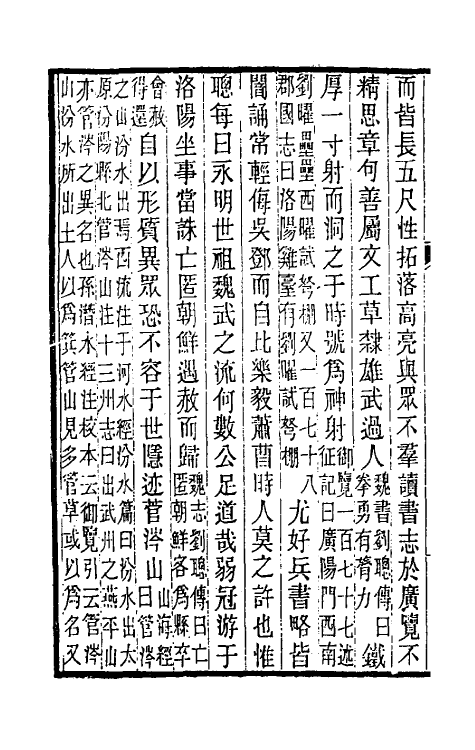 而皆長五尺性拓落高亮與眾不羣讀書志於廣覽不
精思章句善屬文工草隸雄武過人魏書劉聰傳曰拳勇有膂力鐵
厚一寸射而洞之于時號為神射御覽一百七十七述征記曰廣陽門西南
劉曜壘壘西曜試弩棚又一百七十八郡國志曰洛陽雞臺有劉曜試弩棚尤好兵書略皆
闇誦常輕侮吳鄧而自比樂毅蕭曹時人莫之許也惟
聰每曰永明世祖魏武之流何數公足道哉弱冠游于
洛陽坐事當誅亡匿朝鮮遇赦而歸魏志劉聰傳曰亡匿朝鮮客為縣卒
會赦得還自以形質異眾恐不容于世隱迹菅涔山山海經曰管涔
之山汾水出焉西流注于河水經汾水篇曰汾水出太原汾陽縣北管涔山注十三州志曰出武州之燕平山
亦管涔之異名也孫潛水經注校本云御覽引云管涔山汾水所出土人以為箕管山見多管草或以為名又